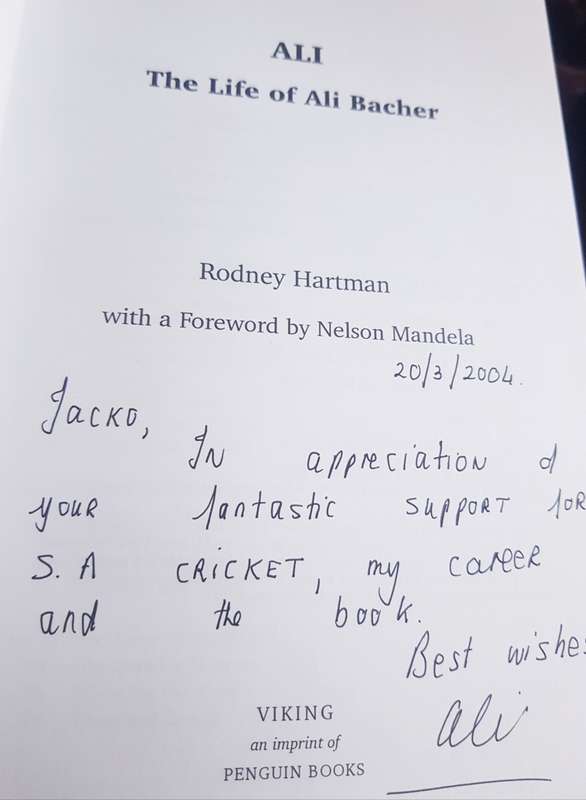 ALI
The Life of Ali Bacher
Rodney Hartman
with a Foreword by Nelson Mandela
20/3/2004.
Jacko,
In appreciation of
your fantastic support for
S. A CRICKET, my career
and the book.
Best wishes
Ali
VIKING
an imprint of
PENGUIN BOOKS